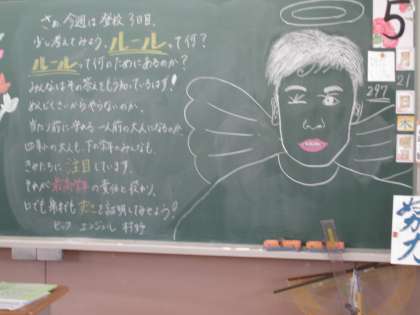 さぁ 今週は 登校 3日目。
少し考えてみよう。ルールって何？
ルールって何のためにあるのか？
みんなはその答えをもう知っているはず！
めんどくさいからやらないのか、
当たり前に守れる一人前の大人になるのか
の大人も、下の学年のみんなも、
きみたちに注目しています。
最高学年の責任と
を証明してみせよう？
エンジェル 村野
5
月
21
日
木
曜
日
297
努力